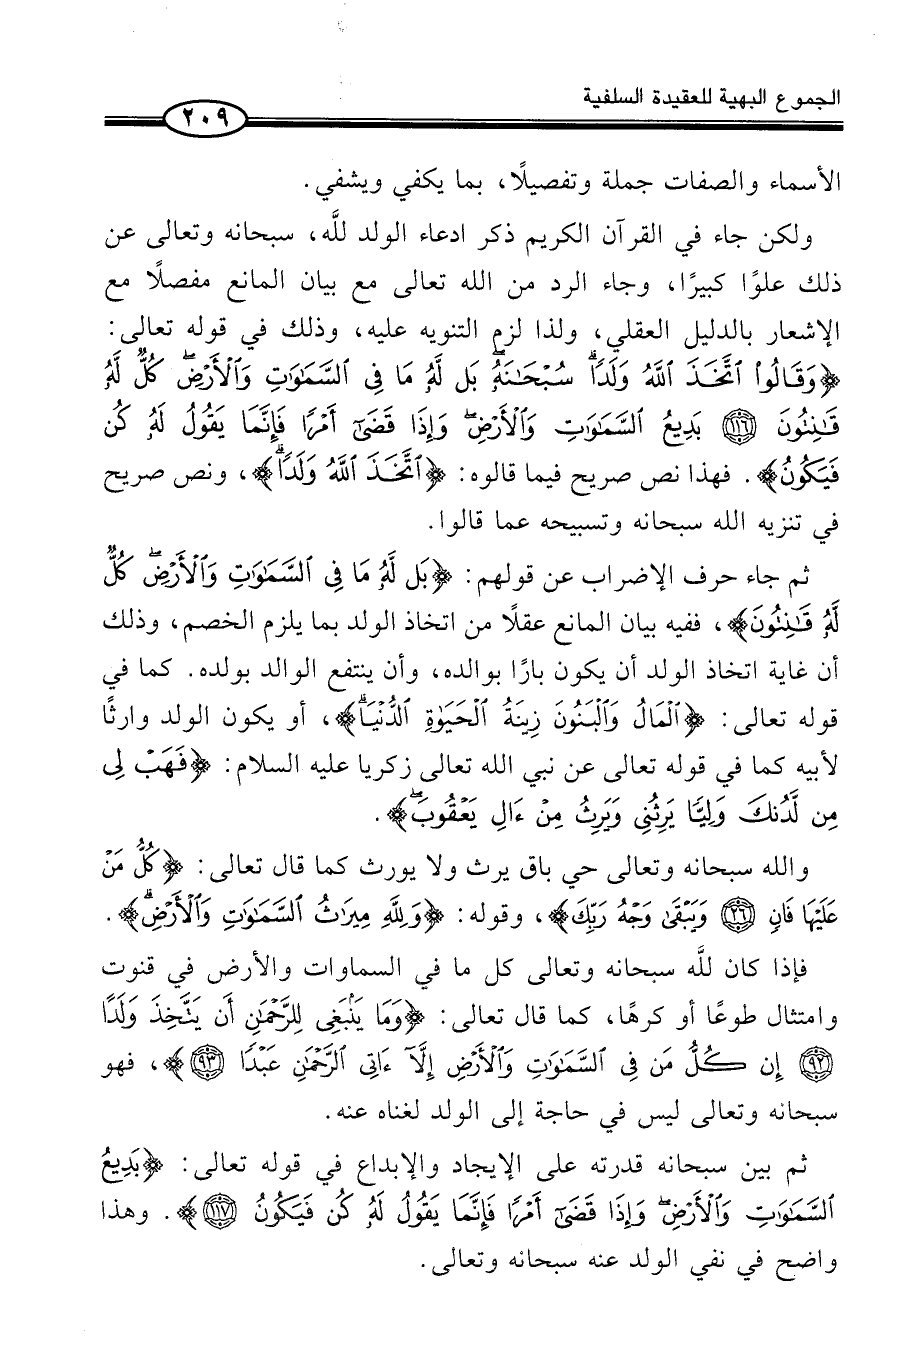 الجموع البهية للعقيدة السلفية
٢٠٩
الأسماء والصفات جملة وتفصيلًا، بما يكفي ويشفي.
ولكن جاء في القرآن الكريم ذكر ادعاء الولد للَّه، سبحانه وتعالى عن
ذلك علوًا كبيرًا، وجاء الرد من الله تعالى مع بيان المانع مفصلًا مع
الإشعار بالدليل العقلي، ولذا لزم التنويه عليه، وذلك في قوله تعالى:
﴿وَقَالُوا۟ ٱتَّخَذَ ٱللَّهُ وَلَدًاۗ سُبْحَـٰنَهُۥۖ بَل لَّهُۥ مَا فِى ٱلسَّمَـٰوَٰتِ وَٱلْأَرْضِۖ كُلٌّ لَّهُۥ
قَـٰنِتُونَ ﴿١١٦﴾ بَدِيعُ ٱلسَّمَـٰوَٰتِ وَٱلْأَرْضِۖ وَإِذَا قَضَىٰٓ أَمْرًا فَإِنَّمَا يَقُولُ لَهُۥ كُن
فَيَكُونُ﴾. فهذا نص صريح فيما قالوه: ﴿ٱتَّخَذَ ٱللَّهُ وَلَدًاۗ﴾، ونص صريح
في تنزيه الله سبحانه وتسبيحه عما قالوا.
ثم جاء حرف الإضراب عن قولهم: ﴿بَل لَّهُۥ مَا فِى ٱلسَّمَـٰوَٰتِ وَٱلْأَرْضِۖ كُلٌّ
لَّهُۥ قَـٰنِتُونَ﴾، ففيه بيان المانع عقلًا من اتخاذ الولد بما يلزم الخصم، وذلك
أن غاية اتخاذ الولد أن يكون بارًا بوالده، وأن ينتفع الوالد بولده. كما في
قوله تعالى: ﴿ٱلْمَالُ وَٱلْبَنُونَ زِينَةُ ٱلْحَيَوٰةِ ٱلدُّنْيَاۖ﴾، أو يكون الولد وارثًا
لأبيه كما في قوله تعالى عن نبي الله تعالى زكريا عليه السلام: ﴿فَهَبْ لِى
مِن لَّدُنكَ وَلِيًّا يَرِثُنِى وَيَرِثُ مِنْ ءَالِ يَعْقُوبَۖ﴾.
والله سبحانه وتعالى حي باق يرث ولا يورث كما قال تعالى: ﴿كُلُّ مَنْ
عَلَيْهَا فَانٍ ﴿٢٦﴾ وَيَبْقَىٰ وَجْهُ رَبِّكَ﴾، وقوله: ﴿وَلِلَّهِ مِيرَٰثُ ٱلسَّمَـٰوَٰتِ وَٱلْأَرْضِۗ﴾.
فإذا كان للَّه سبحانه وتعالى كل ما في السماوات والأرض في قنوت
وامتثال طوعًا أو كرهًا، كما قال تعالى: ﴿وَمَا يَنۢبَغِى لِلرَّحْمَـٰنِ أَن يَتَّخِذَ وَلَدًا
﴿٩٢﴾ إِن كُلُّ مَن فِى ٱلسَّمَـٰوَٰتِ وَٱلْأَرْضِ إِلَّآ ءَاتِى ٱلرَّحْمَـٰنِ عَبْدًا ﴿٩٣﴾﴾، فهو
سبحانه وتعالى ليس في حاجة إلى الولد لغناه عنه.
ثم بين سبحانه قدرته على الإيجاد والإبداع في قوله تعالى: ﴿بَدِيعُ
ٱلسَّمَـٰوَٰتِ وَٱلْأَرْضِۖ وَإِذَا قَضَىٰٓ أَمْرًا فَإِنَّمَا يَقُولُ لَهُۥ كُن فَيَكُونُ ﴿١١٧﴾﴾. وهذا
واضح في نفي الولد عنه سبحانه وتعالى.